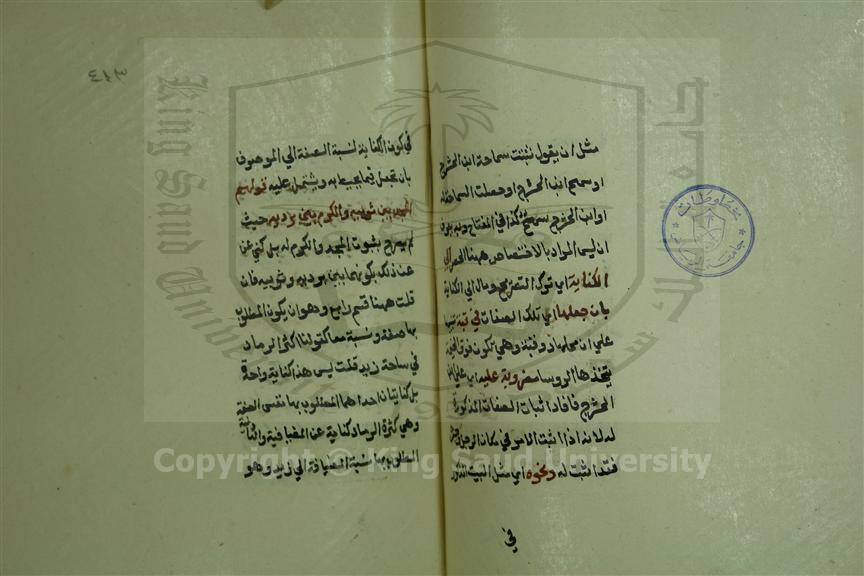 مثل ان يقول ثبتت سماحة ابن الحشرج
او سمح ابن الحشرج او حصلت السماحة له
او ابن الحشرج سمح كذا في المفتاح وبه يعرف
ان ليس المراد بالاختصاص ههنا الحصر الي
الكناية اي ترك التصريح ومال الي الكناية
بان جعلها اي تلك الصفات في قبة تنبيها
علي ان محلها ذو قبة وهي تكون فوق الخيمة
يتخذها الروسا مضروبة عليه اي علي ابن
الحشرج فافاد اثبات الصفات المذكورة
له لانه اذا اثبت الامر في مكان الرجل وحيزه
فقد اثبت له ونحوه اي مثل البيت المذكور
في
٣١٤
في كون الكناية لنسبة الصفة الي الموصوف
بان تجعل فيما يحيط به ويشتمل عليه قولهم
المجد بين ثوبيه والكرم بين برديه حيث
لم يصرح بثبوت المجد والكرم له بل كني عن
عن ذلك بكونهما بين برديه وثوبيه فان
قلت ههنا قسم رابع وهو ان يكون المطلوب
بها صفة ونسبة معا كقولنا اكثر الرماد
في ساحة زيد قلت ليس هذا كناية واحدة
بل كنايتان احداهما المطلوب بها نفس الصفة
وهي كثرة الرماد كناية عن المضيافية والثانية
المطلوب بها نسبة المضيافة الي زيد وهو
King Saud University
Copyright © King Saud University